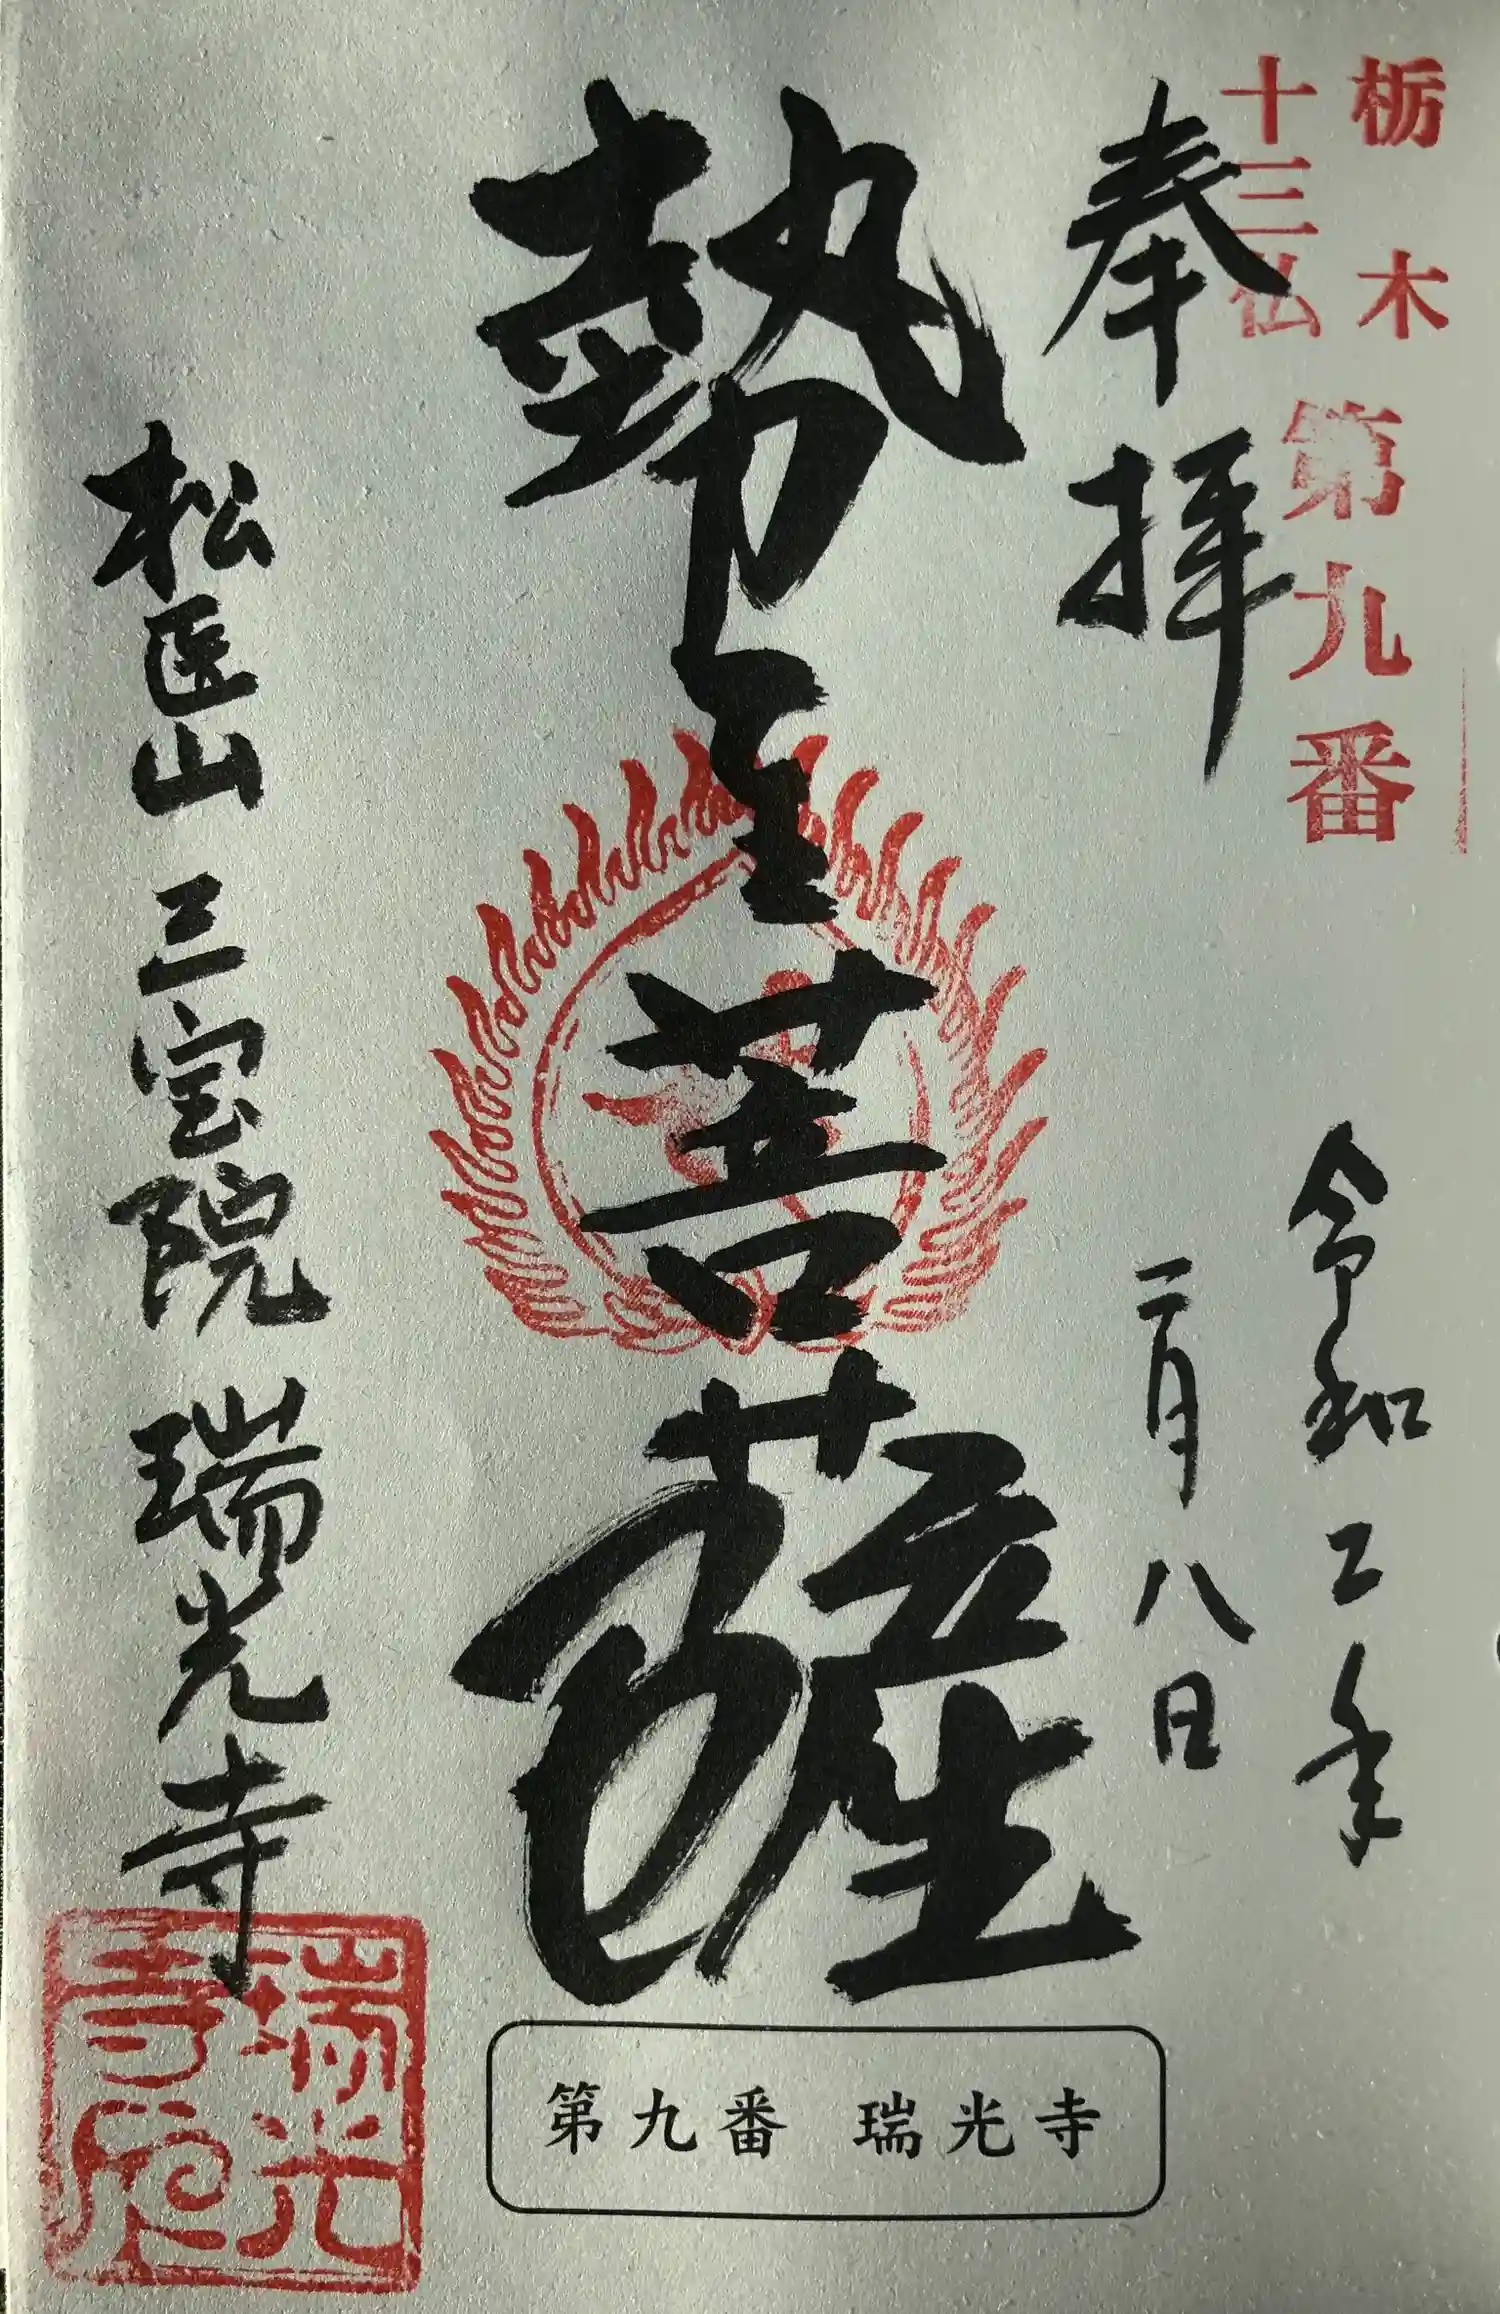 栃木
十三仏
第九番
奉拝
令和二年
二月八日
勢至菩薩
松医山 三宝院 瑞光寺
瑞光寺印
第九番 瑞光寺